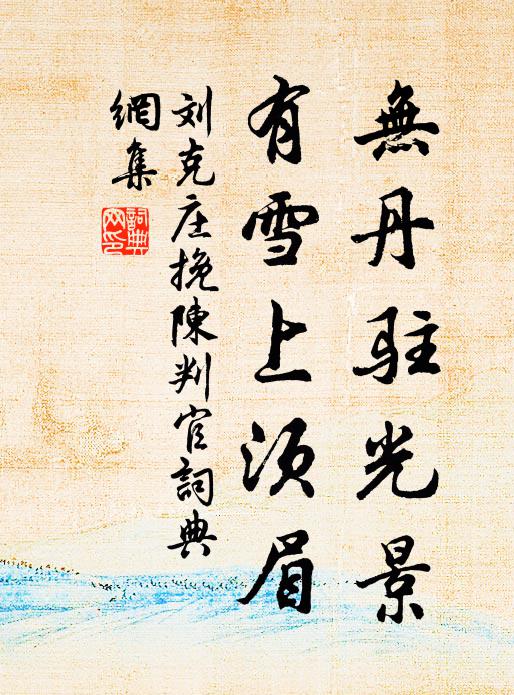 無丹駐光景
有雪上须眉
刘克庄挽陳判官詞典
網集
詞典
网印